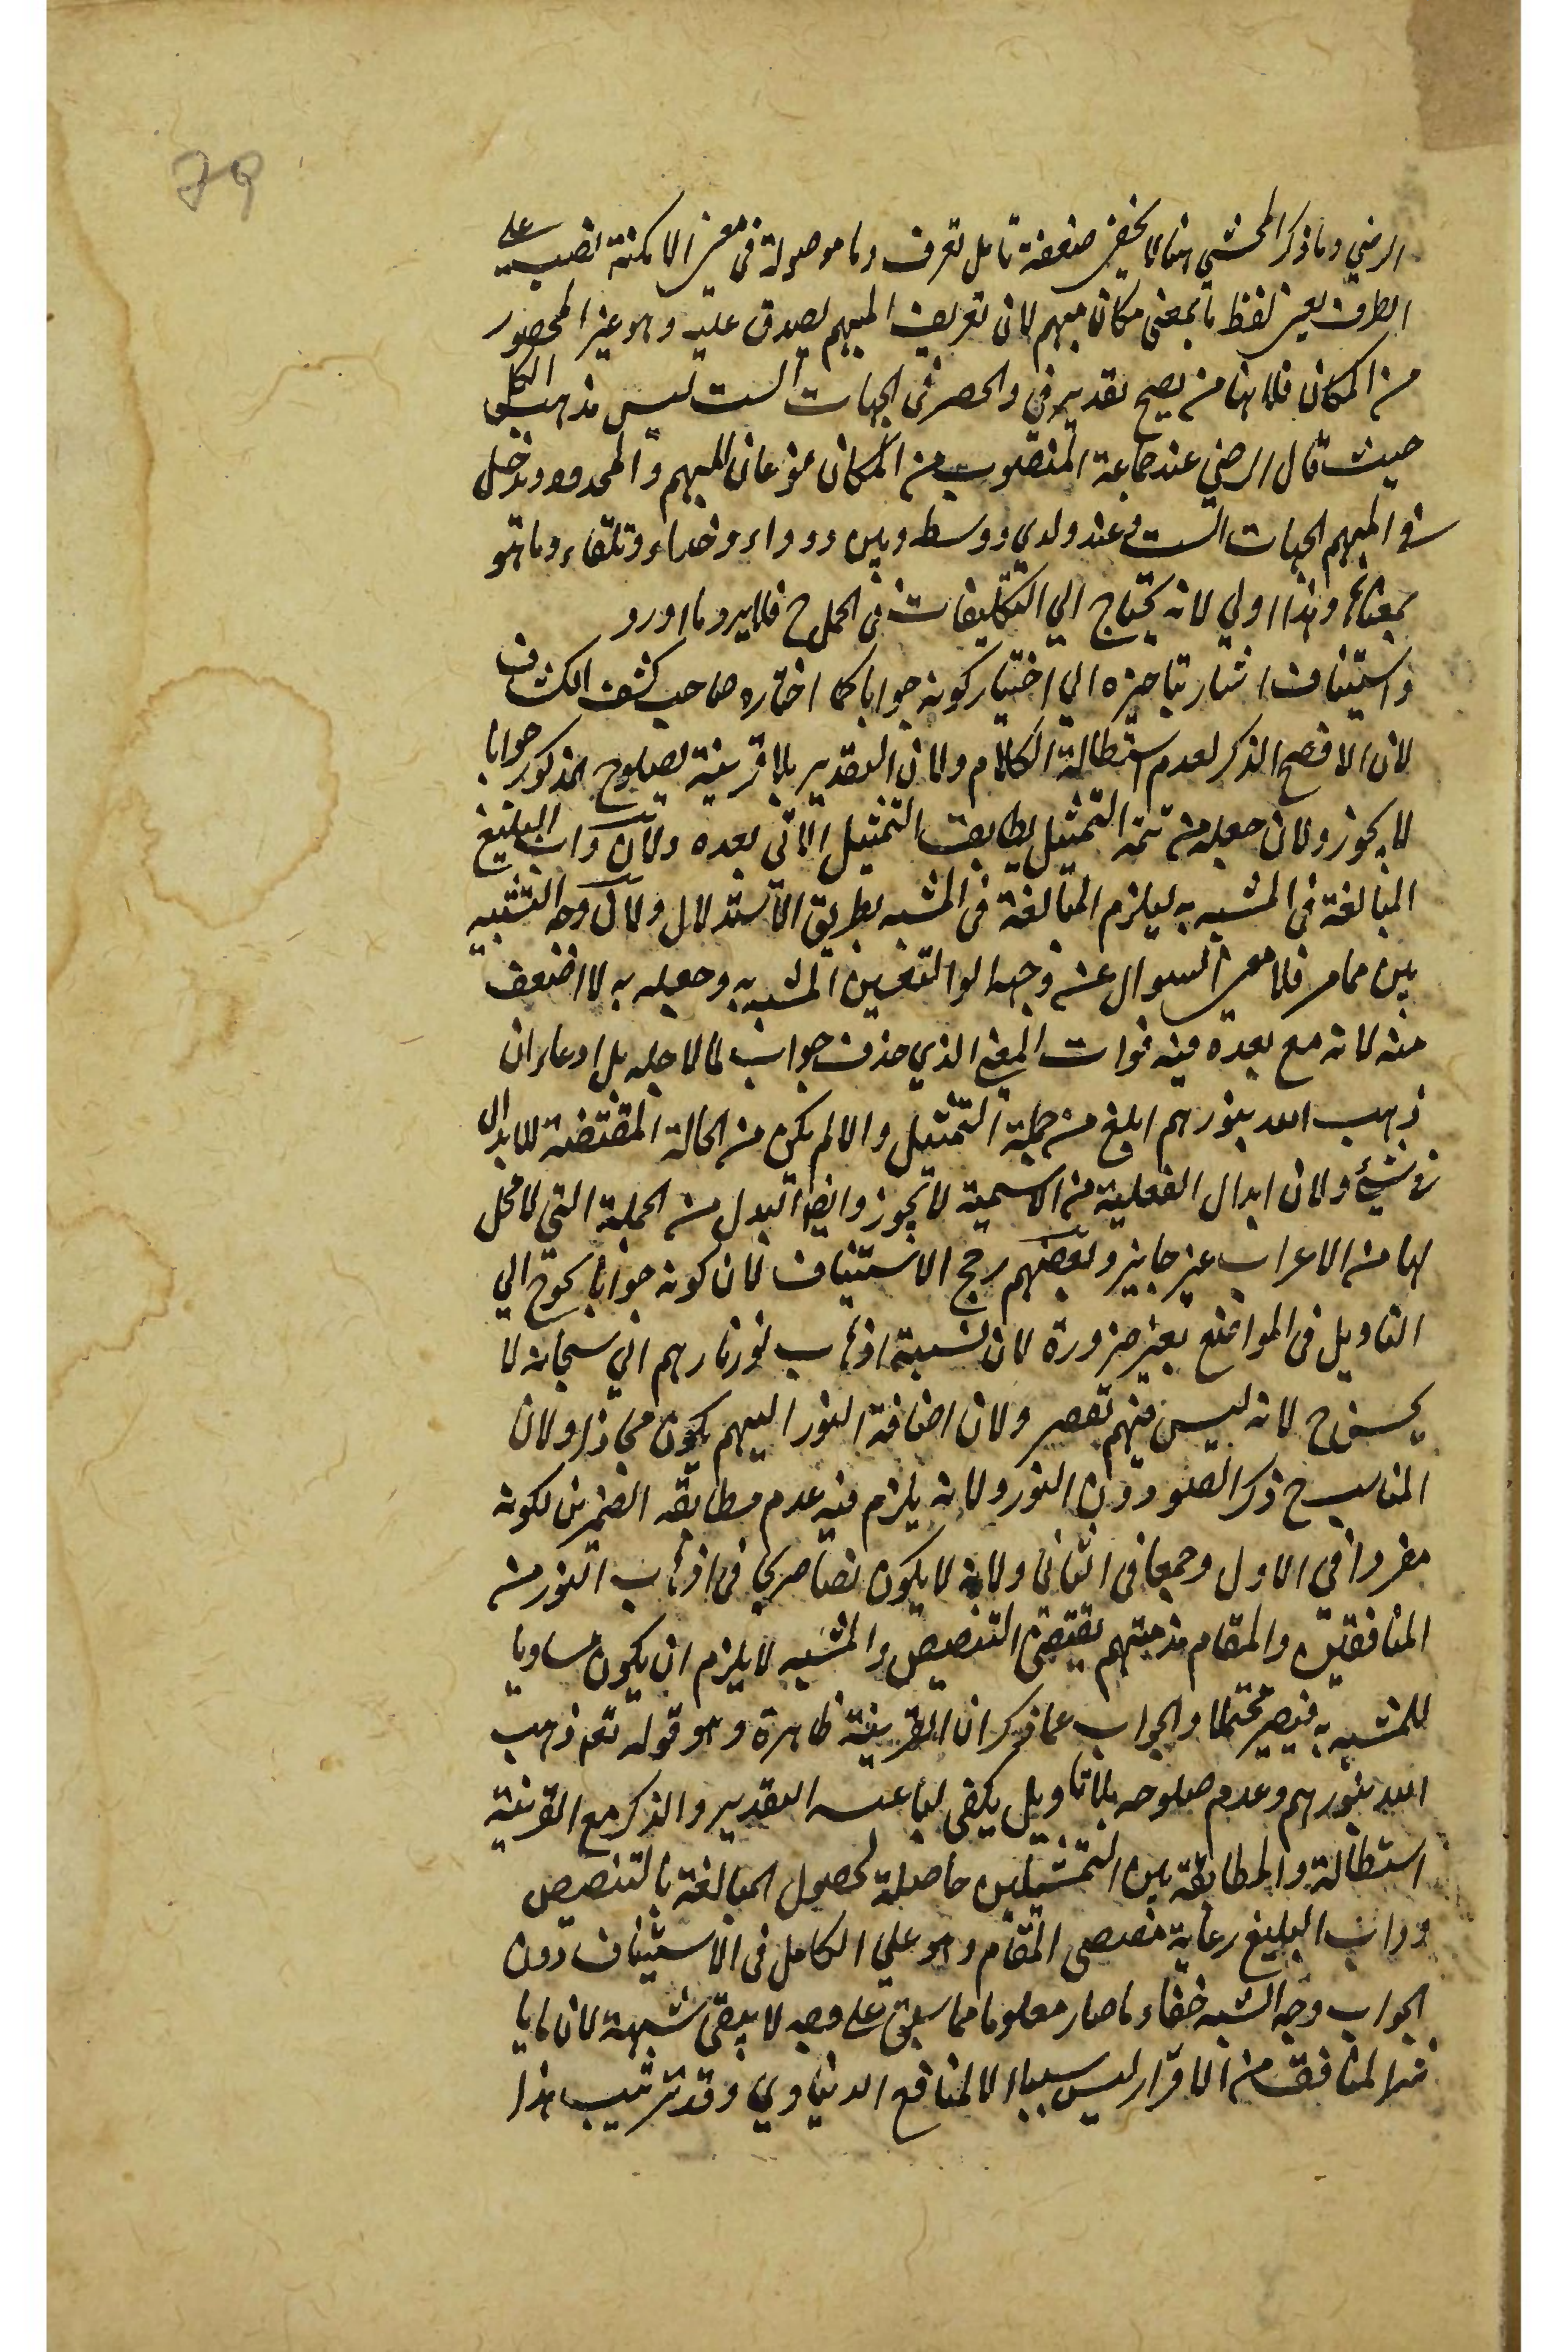 79
الرضي وما ذكر المحشي هنا لا يخفى ضعفه تامل تعرف وما موصولة في معنى الامكنة نصب على
الظرف يعني لفظ ما بمعنى مكان مبهم لان تعريف المبهم يصدق عليه وهو غير المحصور
من المكان فلا هنا من يصح تقدير في والحصر في الجهات الست ليس مذهب الكل
حيث قال الرضي عند جماعة المنصوب من المكان نوعان المبهم والمحدود ويدخل
في المبهم الجهات الست وعند ولدي ووسط وبين ووراء وحذاء وتلقاء وما هو
بمعناها وهذا اولي لانه يحتاج الي التكليفات في الحل ح فلا يرد ما اورد
واستيناف اشار بتاخيره الي اختيار كونه جوابا كما اختاره صاحب كشف الكشاف
لان الافصح الذكر لعدم استطالة الكلام ولان التقدير بلا قرينة لصلوح المذكور جوابا
لا يجوز ولان جعله من تتمة التمثيل يطابق التمثيل الاتي بعده ولان داب البليغ
المبالغة في المشبه به ليلزم المبالغة في المشبه بطريق الاستدلال ولان وجه التشبيه
بين مما مر فلا معنى السوال عنه وجه التعيين المشبه به وجعله به لا اضعف
منه لانه مع بعده فيه فوات المعنى الذي حذف جواب لما لاجله بل ادعاء ان
ذهب الله بنورهم ابلغ من جملة التمثيل والا لم يكن من الحالة المقتضية للابدال
في شيء ولان ابدال الفعلية من الاسمية لا يجوز وايضا البدل من الجملة التي لا محل
لها من الاعراب غير جايز وبعضهم رجح الاستيناف لان كونه جوابا يحوج الي
التاويل في المواضع بغير ضرورة لان نسبة اذهاب نور نارهم الي سبحانه لا
يحسن ح لانه ليس منهم تقصير ولان اضافة النور اليهم يكون مجازا ولان
المناسب ح ذكر الضوء دون النور ولانه يلزم فيه عدم مطابقة الضميرين لكونه
مفردا في الاول وجمعا في الثاني ولانه لا يكون نصا صريحا في اذهاب النور من
المنافقين والمقام مذمتهم يقتضي التنصيص والمشبه لا يلزم ان يكون مساويا
للمشبه به فيصير محتملا والجواب عما ذكر ان القرينة ظاهرة وهو قوله تعم ذهب
الله بنورهم وعدم صلوحه بلا تاويل يكفي لباعث التقدير والذكر مع القرينة
استطالة والمطابقة بين التمثيلين حاصلة لحصول المبالغة بالتنصيص
وداب البليغ رعاية مقتضى المقام وهو علي الكامل في الاستيناف دون
الجواب وجه الشبه خفاء ما صار معلوما مما سبق على وجه لا يبقى شبهة لان
المنافق من الاقرار ليس سببا الا لمنافع الدنياوي وقد ترتيب هذا